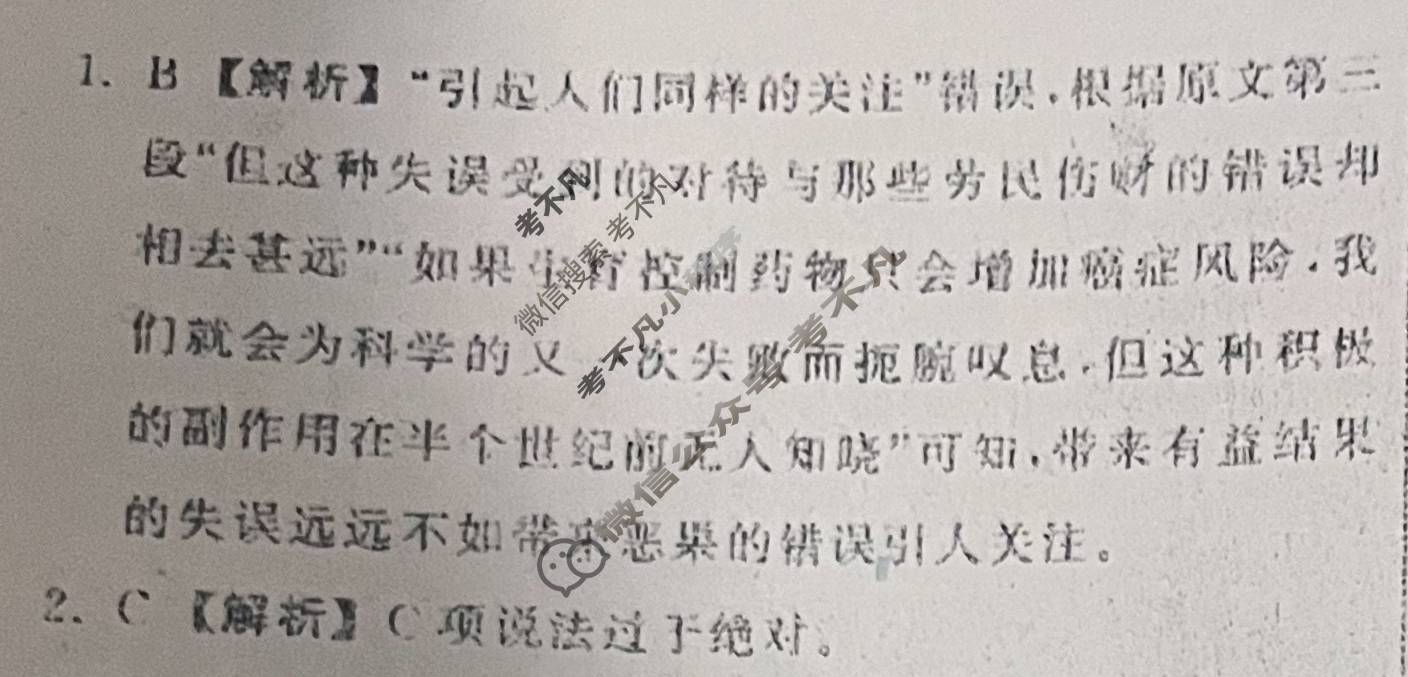 1. B 【解析】“引起人们同样的关注”错误,根据原文第三
段“但这种失误受到的对待与那些劳民伤财的错误却
相去甚远”“如果生育控制药物只会增加癌症风险,我
们就会为科学的又一次失败而扼腕叹息,但这种积极
的副作用在半个世纪前无人知晓”可知,带来有益结果
的失误远远不如带来恶果的错误引人关注。
2. C 【解析】C项说法过于绝对。
考不凡
微信搜索 考不凡
考不凡小
微信公众 考不凡